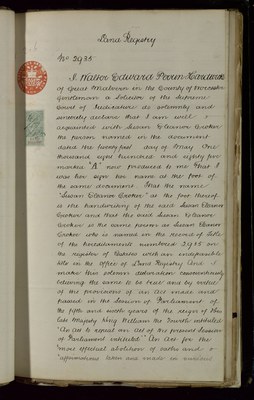 Land Registry
No 2935
I Walter Edward
of Great Malvern in the County of Worcester
Gentleman a Solicitor of the Supreme
Court of Judicature do solemnly and
sincerely declare that I am well
acquainted with Susan Eleanor
the person named in the document
dated the twenty first day of May One
thousand eight hundred and eighty four
marked "A" now produced to me That I
saw her sign her name at the foot of
the same document That the name
"Susan Eleanor" at the foot thereof
is the handwriting of the said Susan Eleanor
and that the said Susan Eleanor
is the same person as Susan Eleanor
who is named on the record of title
of the hereditaments numbered 2935 on
the register of Estates with an indefeasible
title in the Office of Land Registry And I
make this solemn declaration conscientiously
believing the same to be true and by virtue
of the provisions of an Act made and
passed in the Session of Parliament of
the fifth and sixth years of the reign of His
late Majesty King William the Fourth intituled
"An Act to repeal an Act of the present Session
of Parliament intituled" An Act for the
"more effectual abolition of oaths and
"affirmations taken and made in various